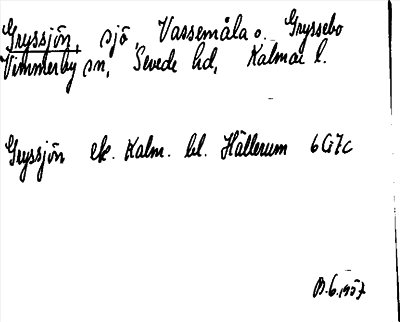 Gryssjön, sjö, Vassemåla o. Gryssebo
Vimmerby sn, Sevede hd, Kalmar l.
Gryssjön ek. Kalm. bl. Hällerum 6G7c
B.6.1957